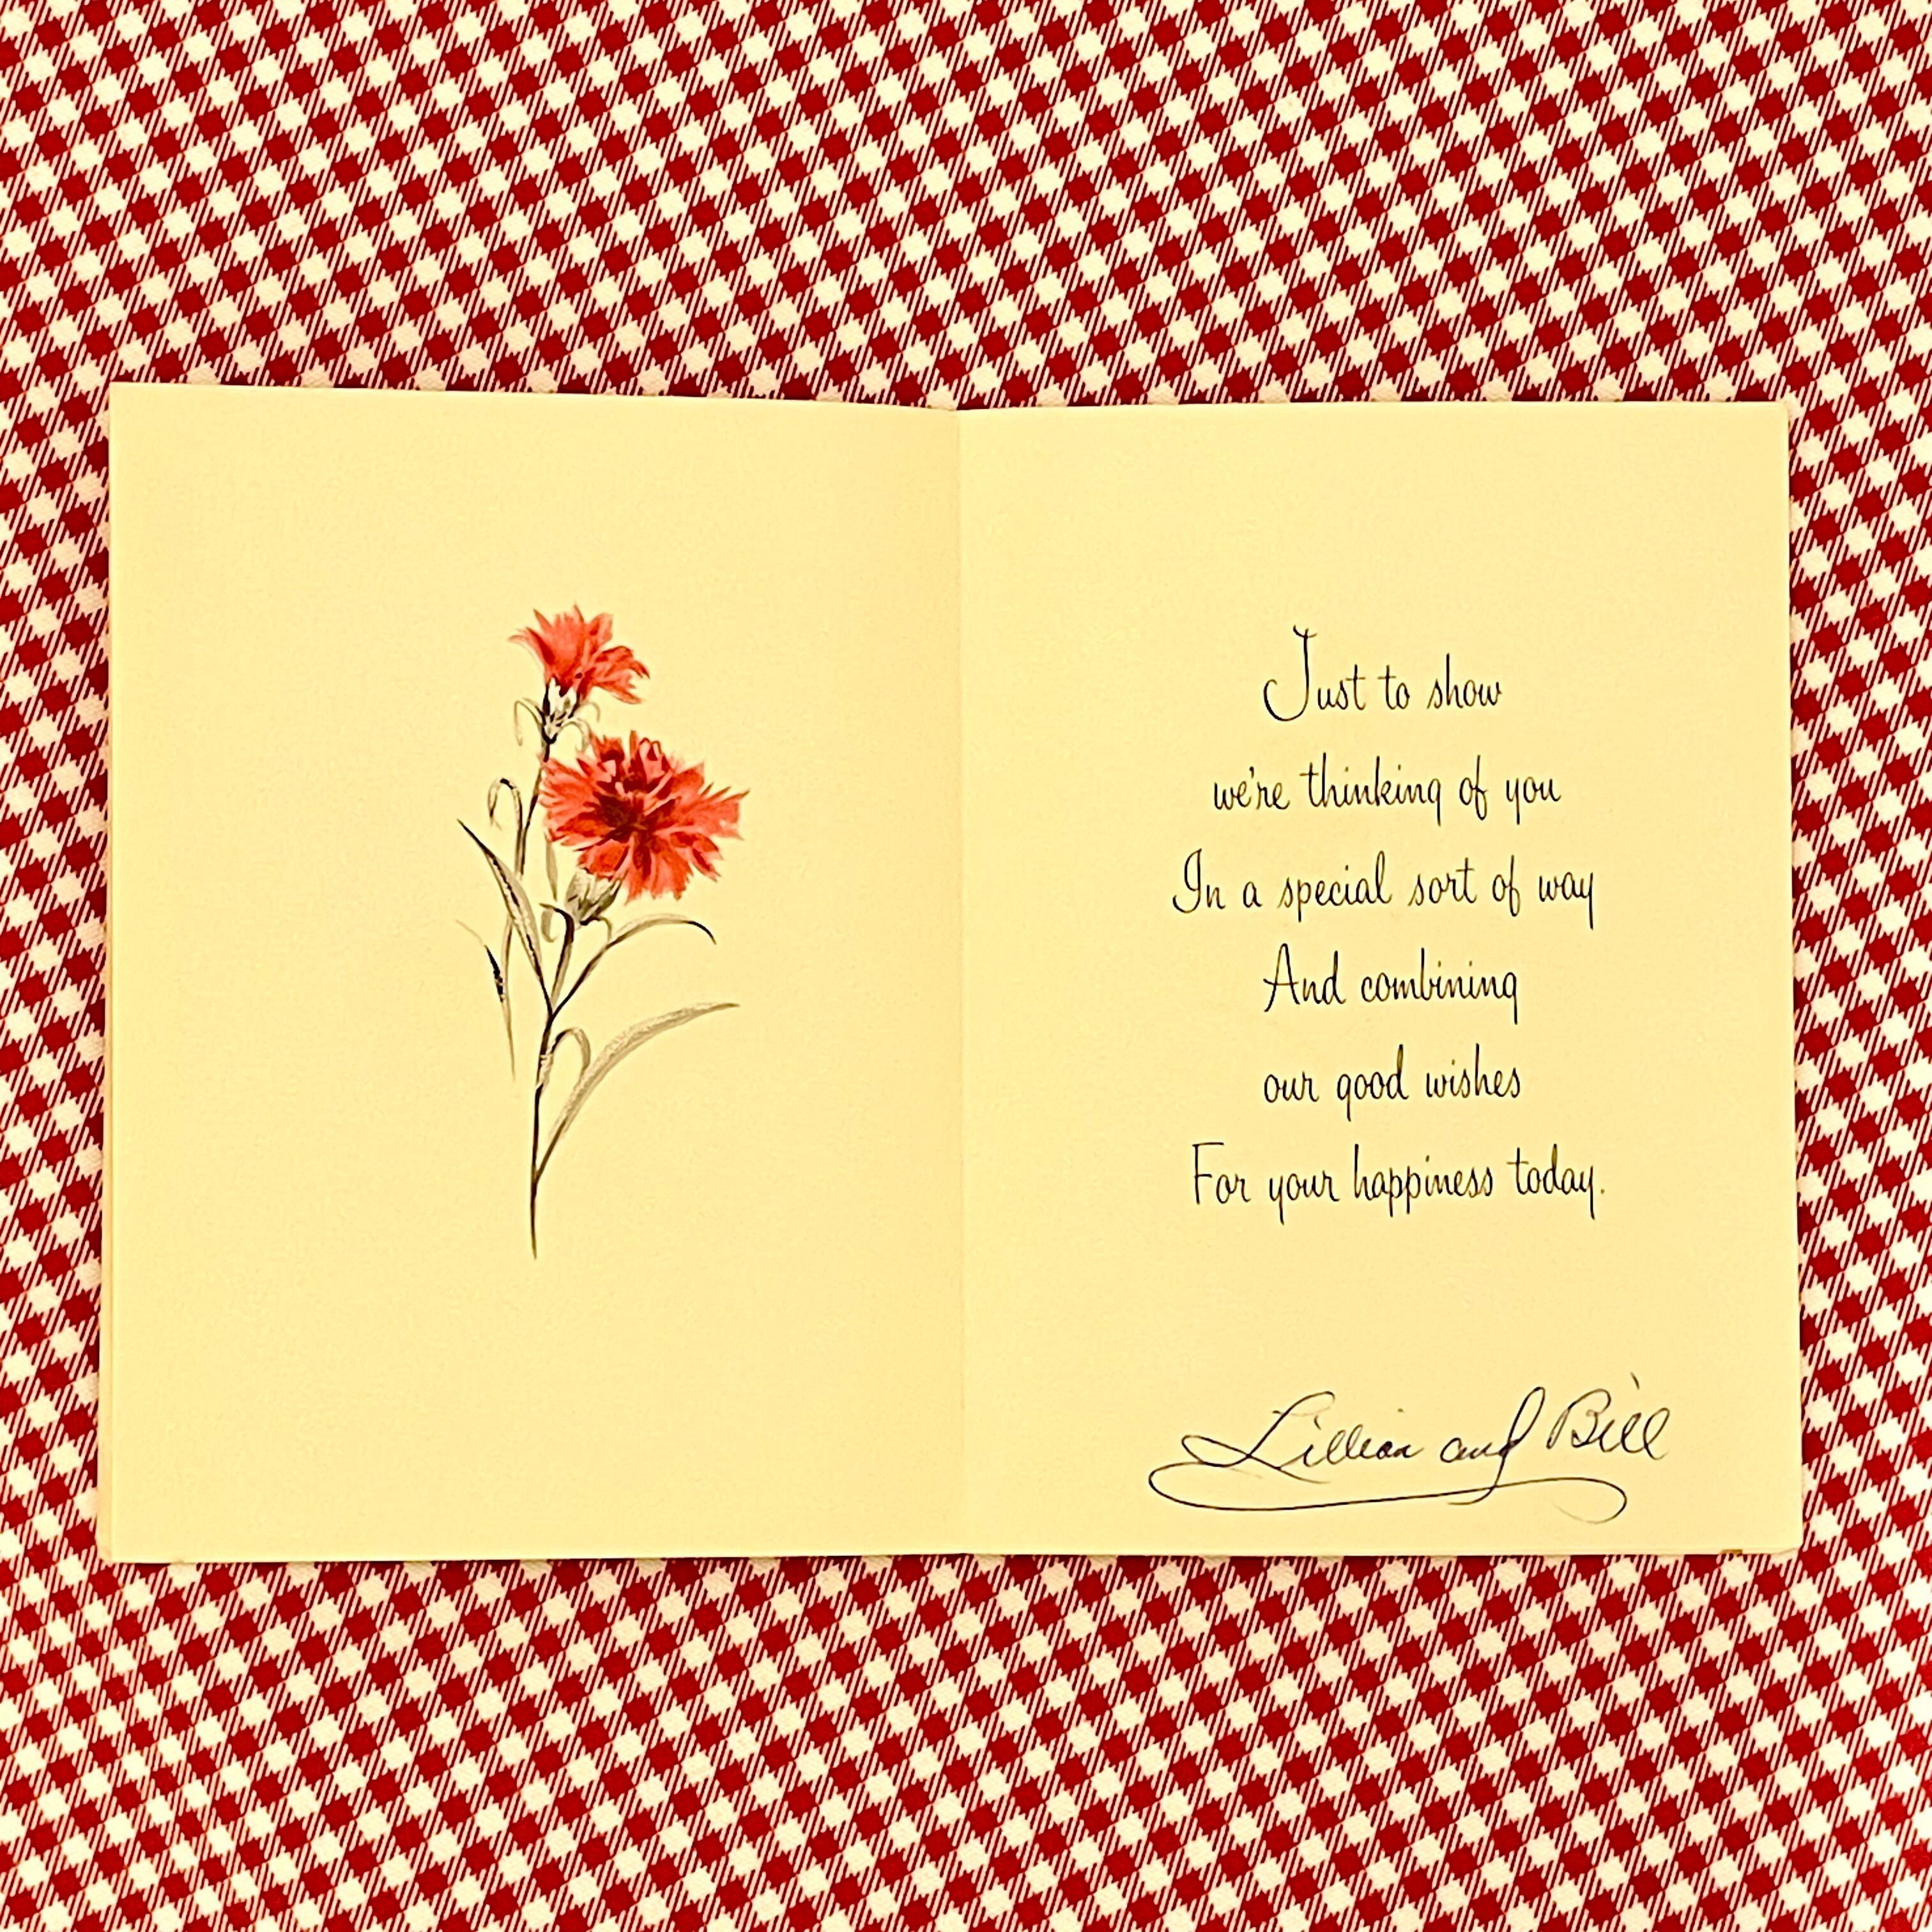 Just to show
we're thinking of you
In a special sort of way
And combining
our good wishes
For your happiness today.
Lillian and Bill